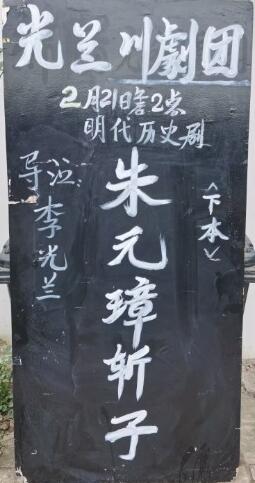 光兰川劇团
2月21日 2点
明代历史剧
朱元璋斩子
<下本>
导演 李光兰